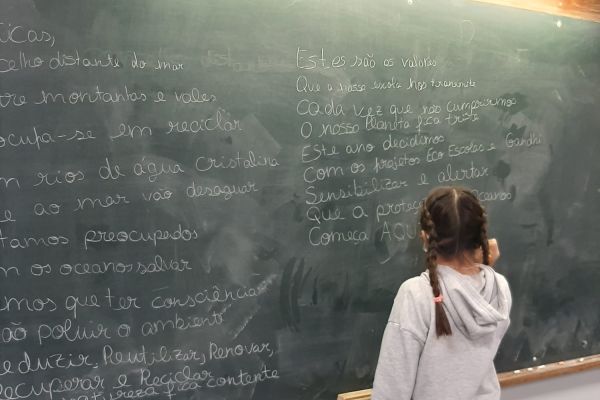 icas,
celho distante do mar
tre montanhas e vales
ocupa-se em reciclar
m rios de água cristalina
e ao mar vão desaguar
tamos preocupados
m os oceanos salvar
mos que ter consciência
ão poluir o ambiente
eduzir, Reutilizar, Renovar,
ecuperar e Reciclar
natureza fica contente
Estes são os valores
Que a nossa escola nos transmite
Cada vez que não cumprirmos
O nosso Planeta fica triste
Este ano decidimos
Com os projetos Eco Escolas e Gandhi
Sensibilizar e alertar
Que a proteç Oceanos
Começa AQU